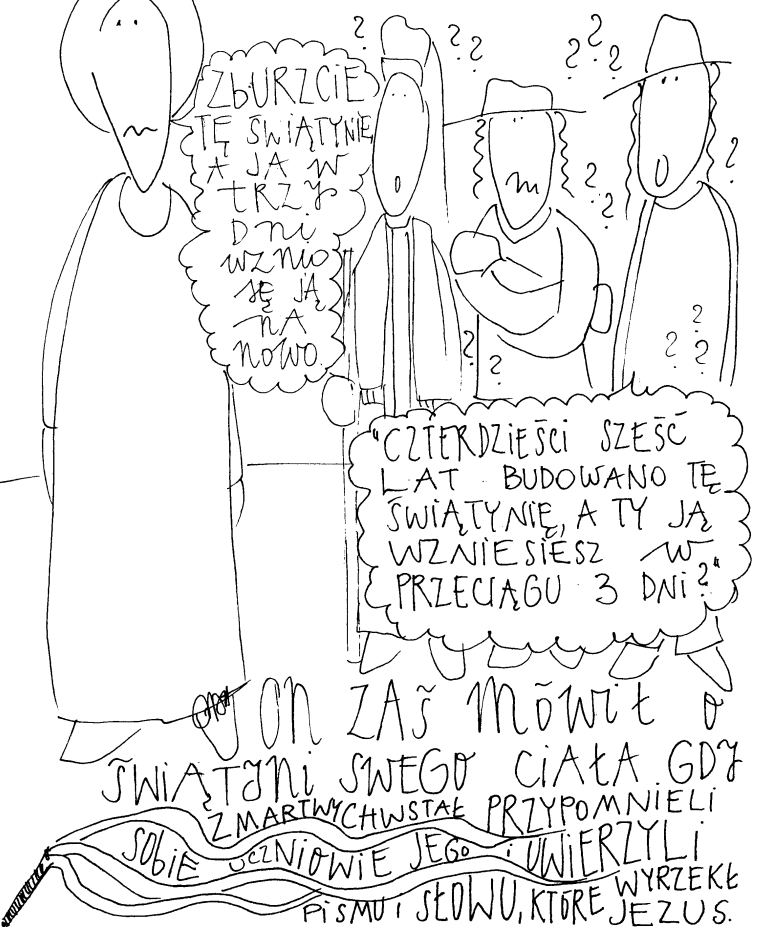 ZBURZCIE
TĘ ŚWIĄTYNIĘ
A JA W
TRZY
DNI
WZNIO
SĘ JĄ
NA
NOWO
"CZTERDZIEŚCI SZEŚĆ
LAT BUDOWANO TĘ
ŚWIĄTYNIĘ, A TY JĄ
WZNIESIESZ W
PRZECIĄGU 3 DNI?"
ON ZAŚ MÓWIŁ O
ŚWIĄTYNI SWEGO CIAŁA GDY
ZMARTWYCHWSTAŁ PRZYPOMNIELI
SOBIE UCZNIOWIE JEGO i UWIERZYLI
PISMU i SŁOWU, KTÓRE WYRZEKŁ
JEZUS.